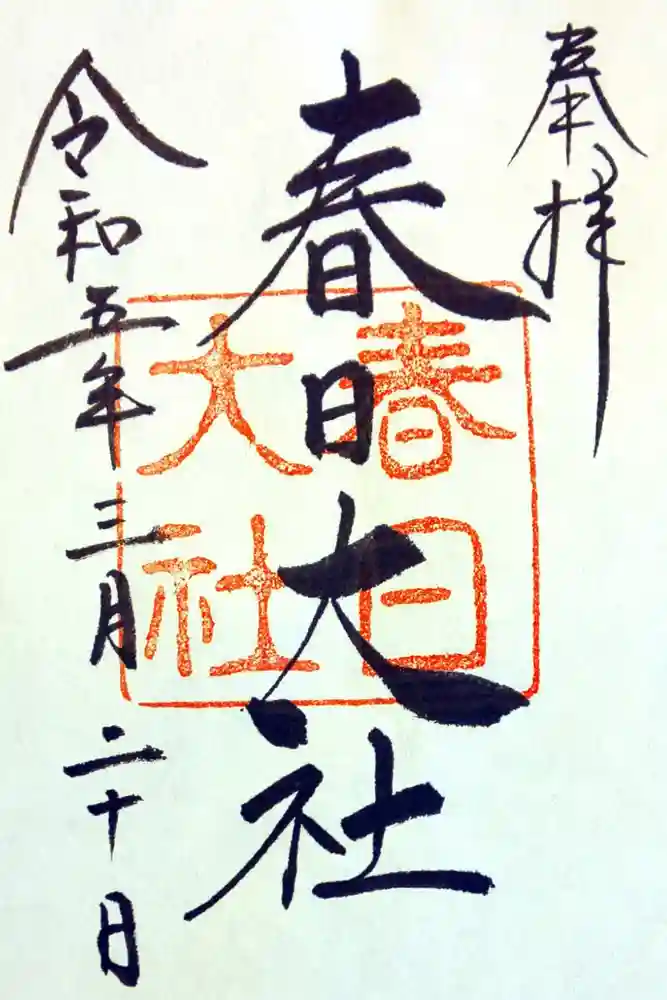 奉拝
春日大社
春日
大社
令和五年三月二十日